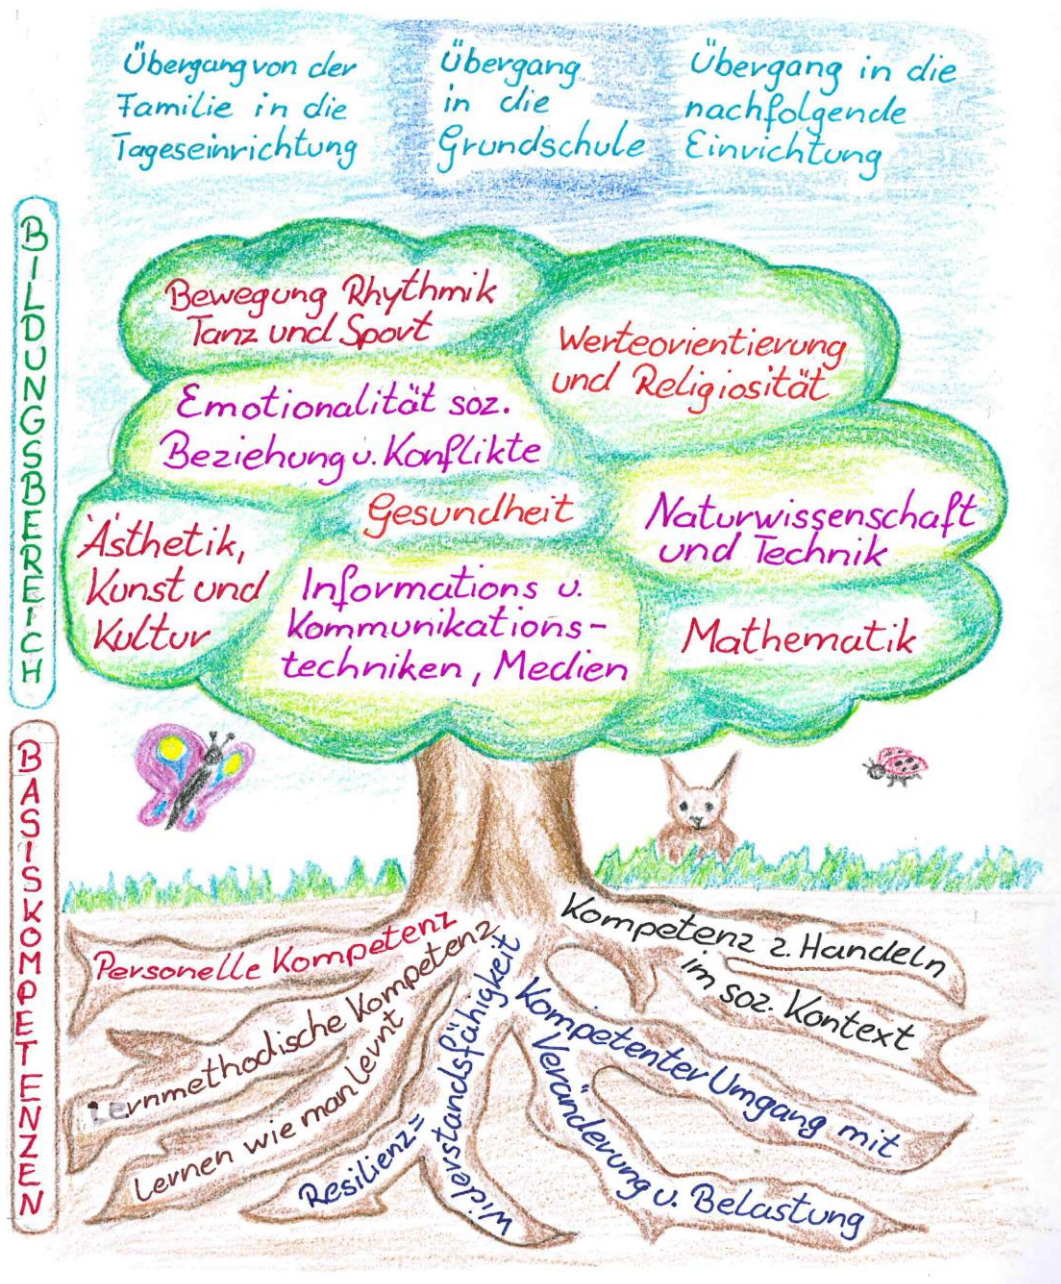 Übergang von der
Familie in die
Tageseinrichtung
Übergang
in die
Grundschule
Übergang in die
nachfolgende
Einrichtung
BILDUNGSBEREICH
Bewegung Rhythmik
Tanz und Sport
Werteorientierung
und Religiosität
Emotionalität soz.
Beziehung u. Konflikte
Gesundheit
Naturwissenschaft
und Technik
Ästhetik,
Kunst und
Kultur
Informations u.
Kommunikations-
techniken, Medien
Mathematik
BASISKOMPETENZEN
Personelle Kompetenz
Lernmethodische Kompetenz
Lernen wie man lernt
Resilienz=
Widerstandsfähigkeit
Kompetenter Umgang mit
Veränderung u. Belastung
Kompetenz z. Handeln
im soz. Kontext